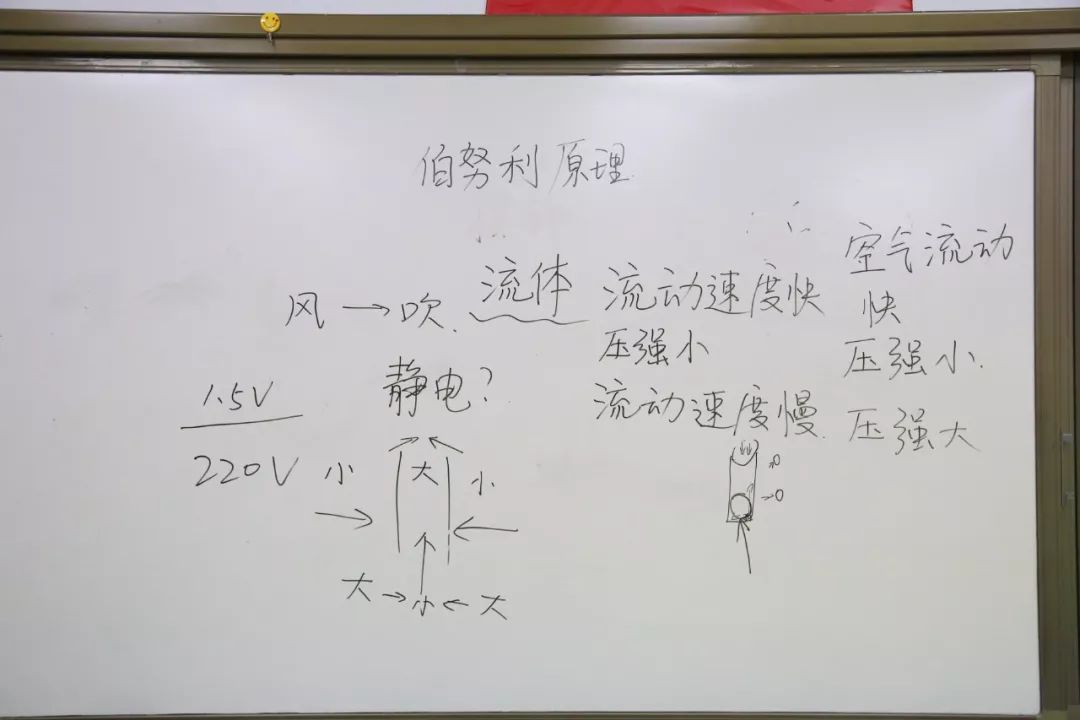 伯努利原理
风→吹. 流体
流动速度快
压强小
流动速度慢.
空气流动
快
压强小.
压强大
静电?
1.5V
220V
小 大 小
大→小←大